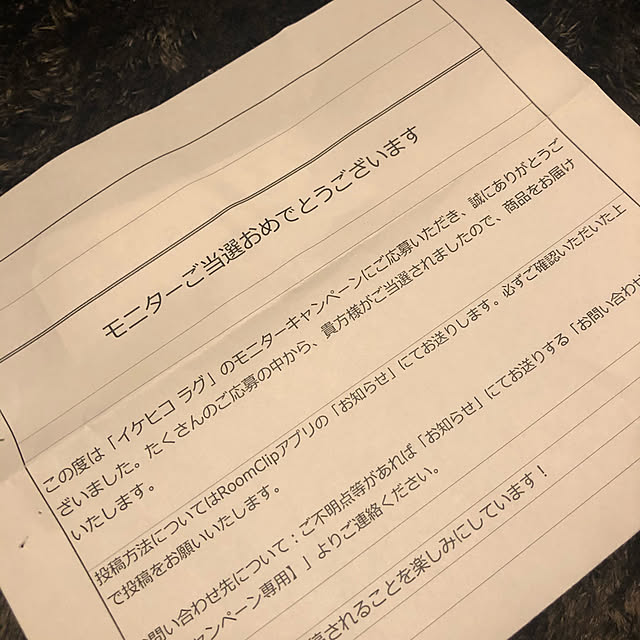 モニターご当選おめでとうございます
この度は「イケヒコ ラグ」のモニターキャンペーンにご応募いただき、誠にありがとうご
ざいました。たくさんのご応募の中から、貴方様がご当選されましたので、商品をお届け
いたします。
投稿方法についてはRoomClipアプリの「お知らせ」にてお送りします。必ずご確認いただいた上
で投稿をお願いいたします。
問い合わせ先について：ご不明点等があれば「お知らせ」にてお送りする「お問い合わせ
ャンペーン専用】」よりご連絡ください。
稿されることを楽しみにしています！